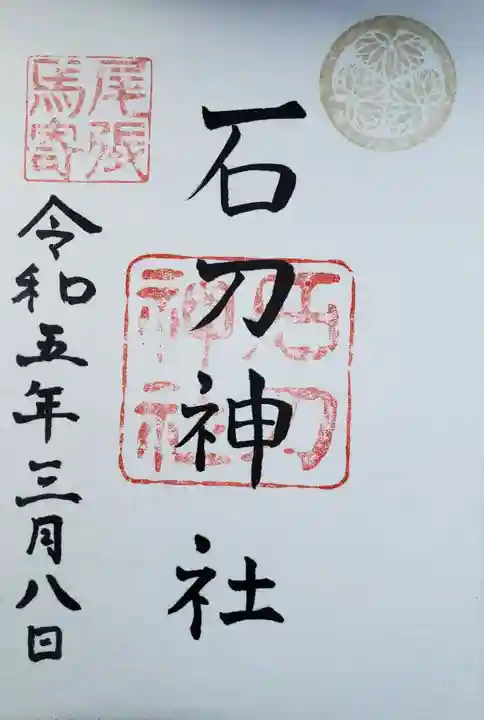 石刀神社
石刀神社
尾張馬寄
令和五年三月八日